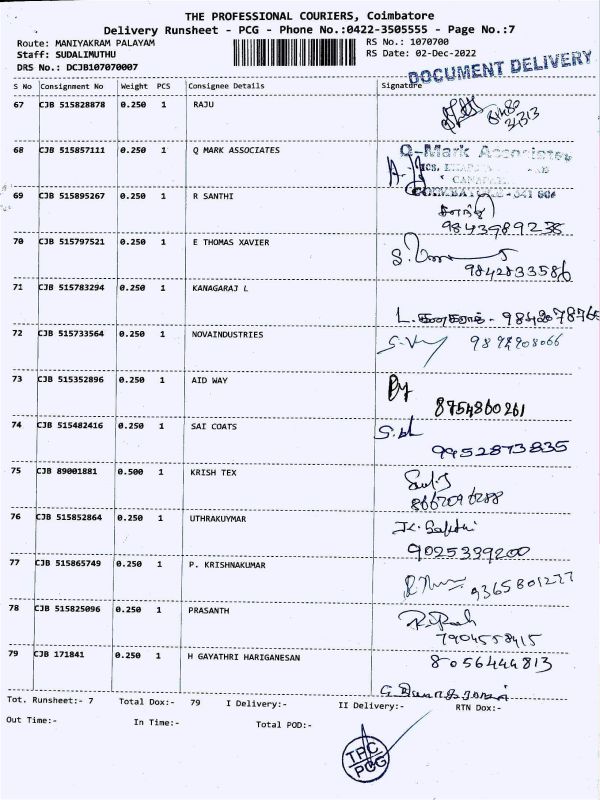 THE PROFESSIONAL COURIERS, Coimbatore
Delivery Runsheet - PCG - Phone No.:0422-3505555 - Page No.:7
Route: MANIYAKRAM PALAYAM RS No.: 1070700
Staff: SUDALIMUTHU RS Date: 02-Dec-2022
DRS No.: DCJB107070007
DOCUMENT DELIVERY
S No Consignment No Weight PCS Consignee Details Signature
67 CJB 515828878 0.250 1 RAJU
68 CJB 515857111 0.250 1 Q MARK ASSOCIATES
Q-Mark Associates
69 CJB 515895267 0.250 1 R SANTHI
9843989238
70 CJB 515797521 0.250 1 E THOMAS XAVIER
9842833586
71 CJB 515783294 0.250 1 KANAGARAJ L
72 CJB 515733564 0.250 1 NOVAINDUSTRIES
73 CJB 515352896 0.250 1 AID WAY
8754860261
74 CJB 515482416 0.250 1 SAI COATS
9952873835
75 CJB 89001881 0.500 1 KRISH TEX
76 CJB 515852864 0.250 1 UTHRAKUYMAR
9025339200
77 CJB 515865749 0.250 1 P. KRISHNAKUMAR
78 CJB 515825096 0.250 1 PRASANTH
7904558415
79 CJB 171841 0.250 1 H GAYATHRI HARIGANESAN
8056444813
Tot. Runsheet:- 7 Total Dox:- 79 I Delivery:- II Delivery:- RTN Dox:-
Out Time:- In Time:- Total POD:-
TPC
PCG